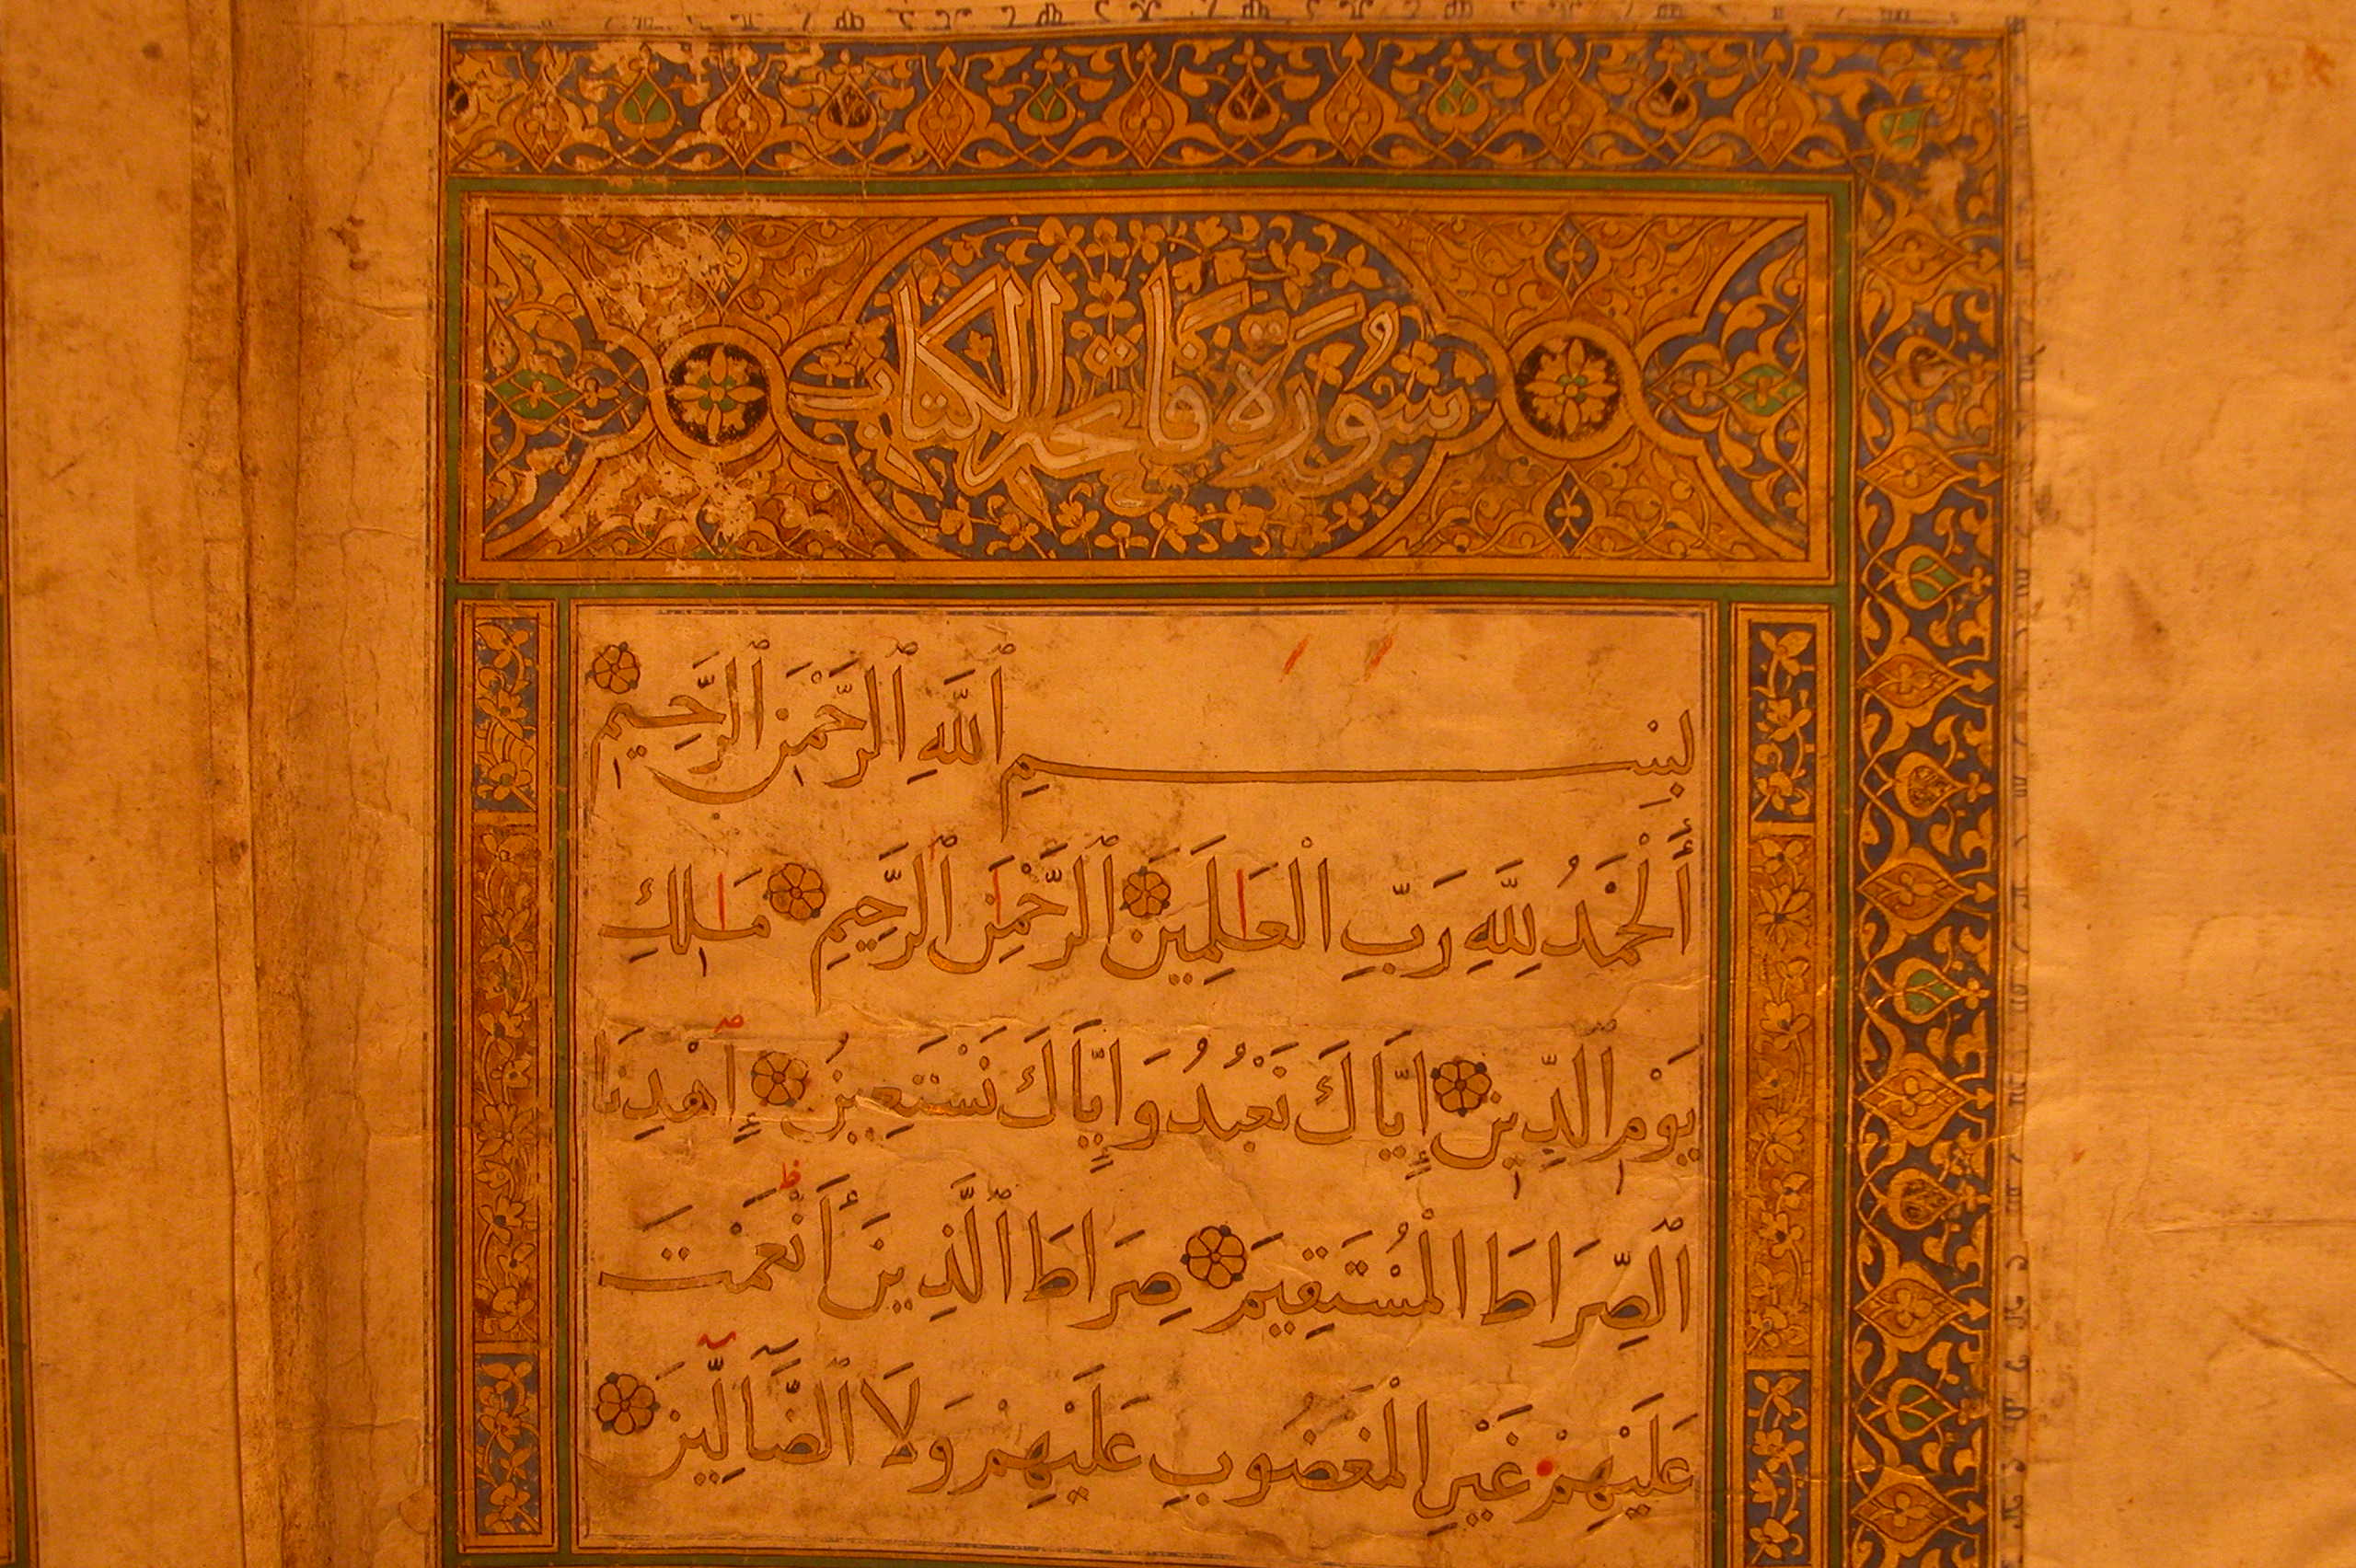 سُورَة فَاتحة الكتاب
بِسْمِ ٱللَّهِ ٱلرَّحْمَنِ ٱلرَّحِيمِ
أَلْحَمْدُ لِلَّهِ رَبِّ الْعَـٰلَمِينَ ٱلرَّحْمَـٰنِ ٱلرَّحِيمِ مَـٰلِكِ
يَوْمِ ٱلدِّينِ إِيَّاكَ نَعْبُدُ وَإِيَّاكَ نَسْتَعِينُ إِهْدِنَا
ٱلصِّرَاطَ الْمُسْتَقِيمَ صِرَاطَ ٱلَّذِينَ أَنْعَمْتَ
عَلَيْهِمْ غَيْرِ الْمَغْضُوبِ عَلَيْهِمْ وَلَا ٱلضَّآلِّينَ